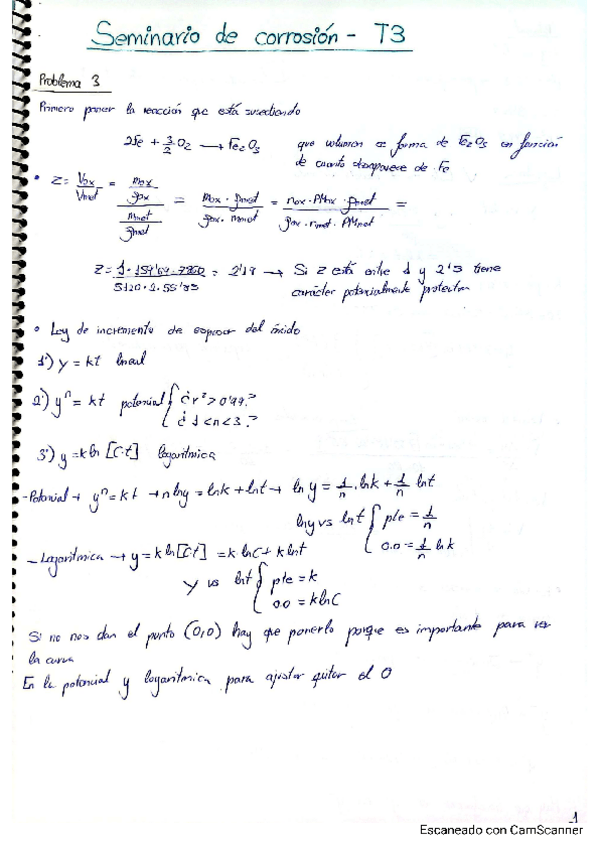 Seminario de corrosión - T3
Problema 3
Primero poner la reacción que está sucediendo
2Fe + 3/2 O2 → Fe2O3 que volumen se forma de Fe2O3 en función
de cuanto desaparece de Fe
• Z = Vox/Vmet = (mox/ρox)/(mmet/ρmet) = mox · ρmet/ρox · mmet = nox · PMox · ρmet/ρox · nmet · PMmet =
Z = 1 · 159'69 · 7860/5120 · 2 · 55'85 = 2'19 → Si Z está entre 1 y 2'5 tiene
carácter potencialmente protector
• Ley de incremento de espesor del óxido
1') y = kt lineal
2') yⁿ = kt potencial { ¿r² > 0'99?
¿1 < n < 3?
3') y = k ln [C·t] logarítmica
- Potencial → yⁿ = kt → n ln y = ln k + ln t → ln y = 1/n · ln k + 1/n ln t
ln y vs ln t { pte = 1/n
o.o = 1/n ln k
- Logarítmica → y = k ln [Ct] = k ln C + k ln t
y vs ln t { pte = k
o.o = k ln C
Si no nos dan el punto (0,0) hay que ponerlo porque es importante para ver
la curva
En la potencial y logarítmica para ajustar quitar el 0
1
Escaneado con CamScanner